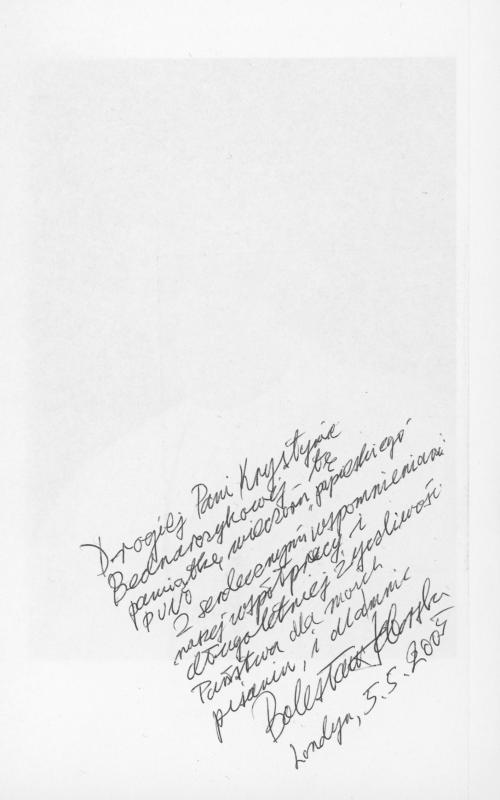 Drogiej Pani Krystynie
Bednarczykowej – tę
pamiątkę wieczoru papieskiego
PUNO
z serdecznymi wspomnieniami
naszej współpracy i
długoletniej życzliwości
Państwa dla moich
pisania, i dla mnie
Bolesław
Londyn, 5.5.2005